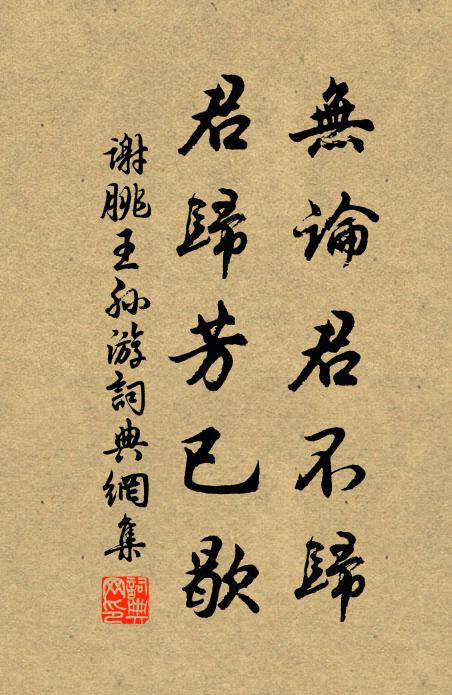 無論君不歸
君歸芳已歇
謝朓王孫游詞典網集
詞典
網印